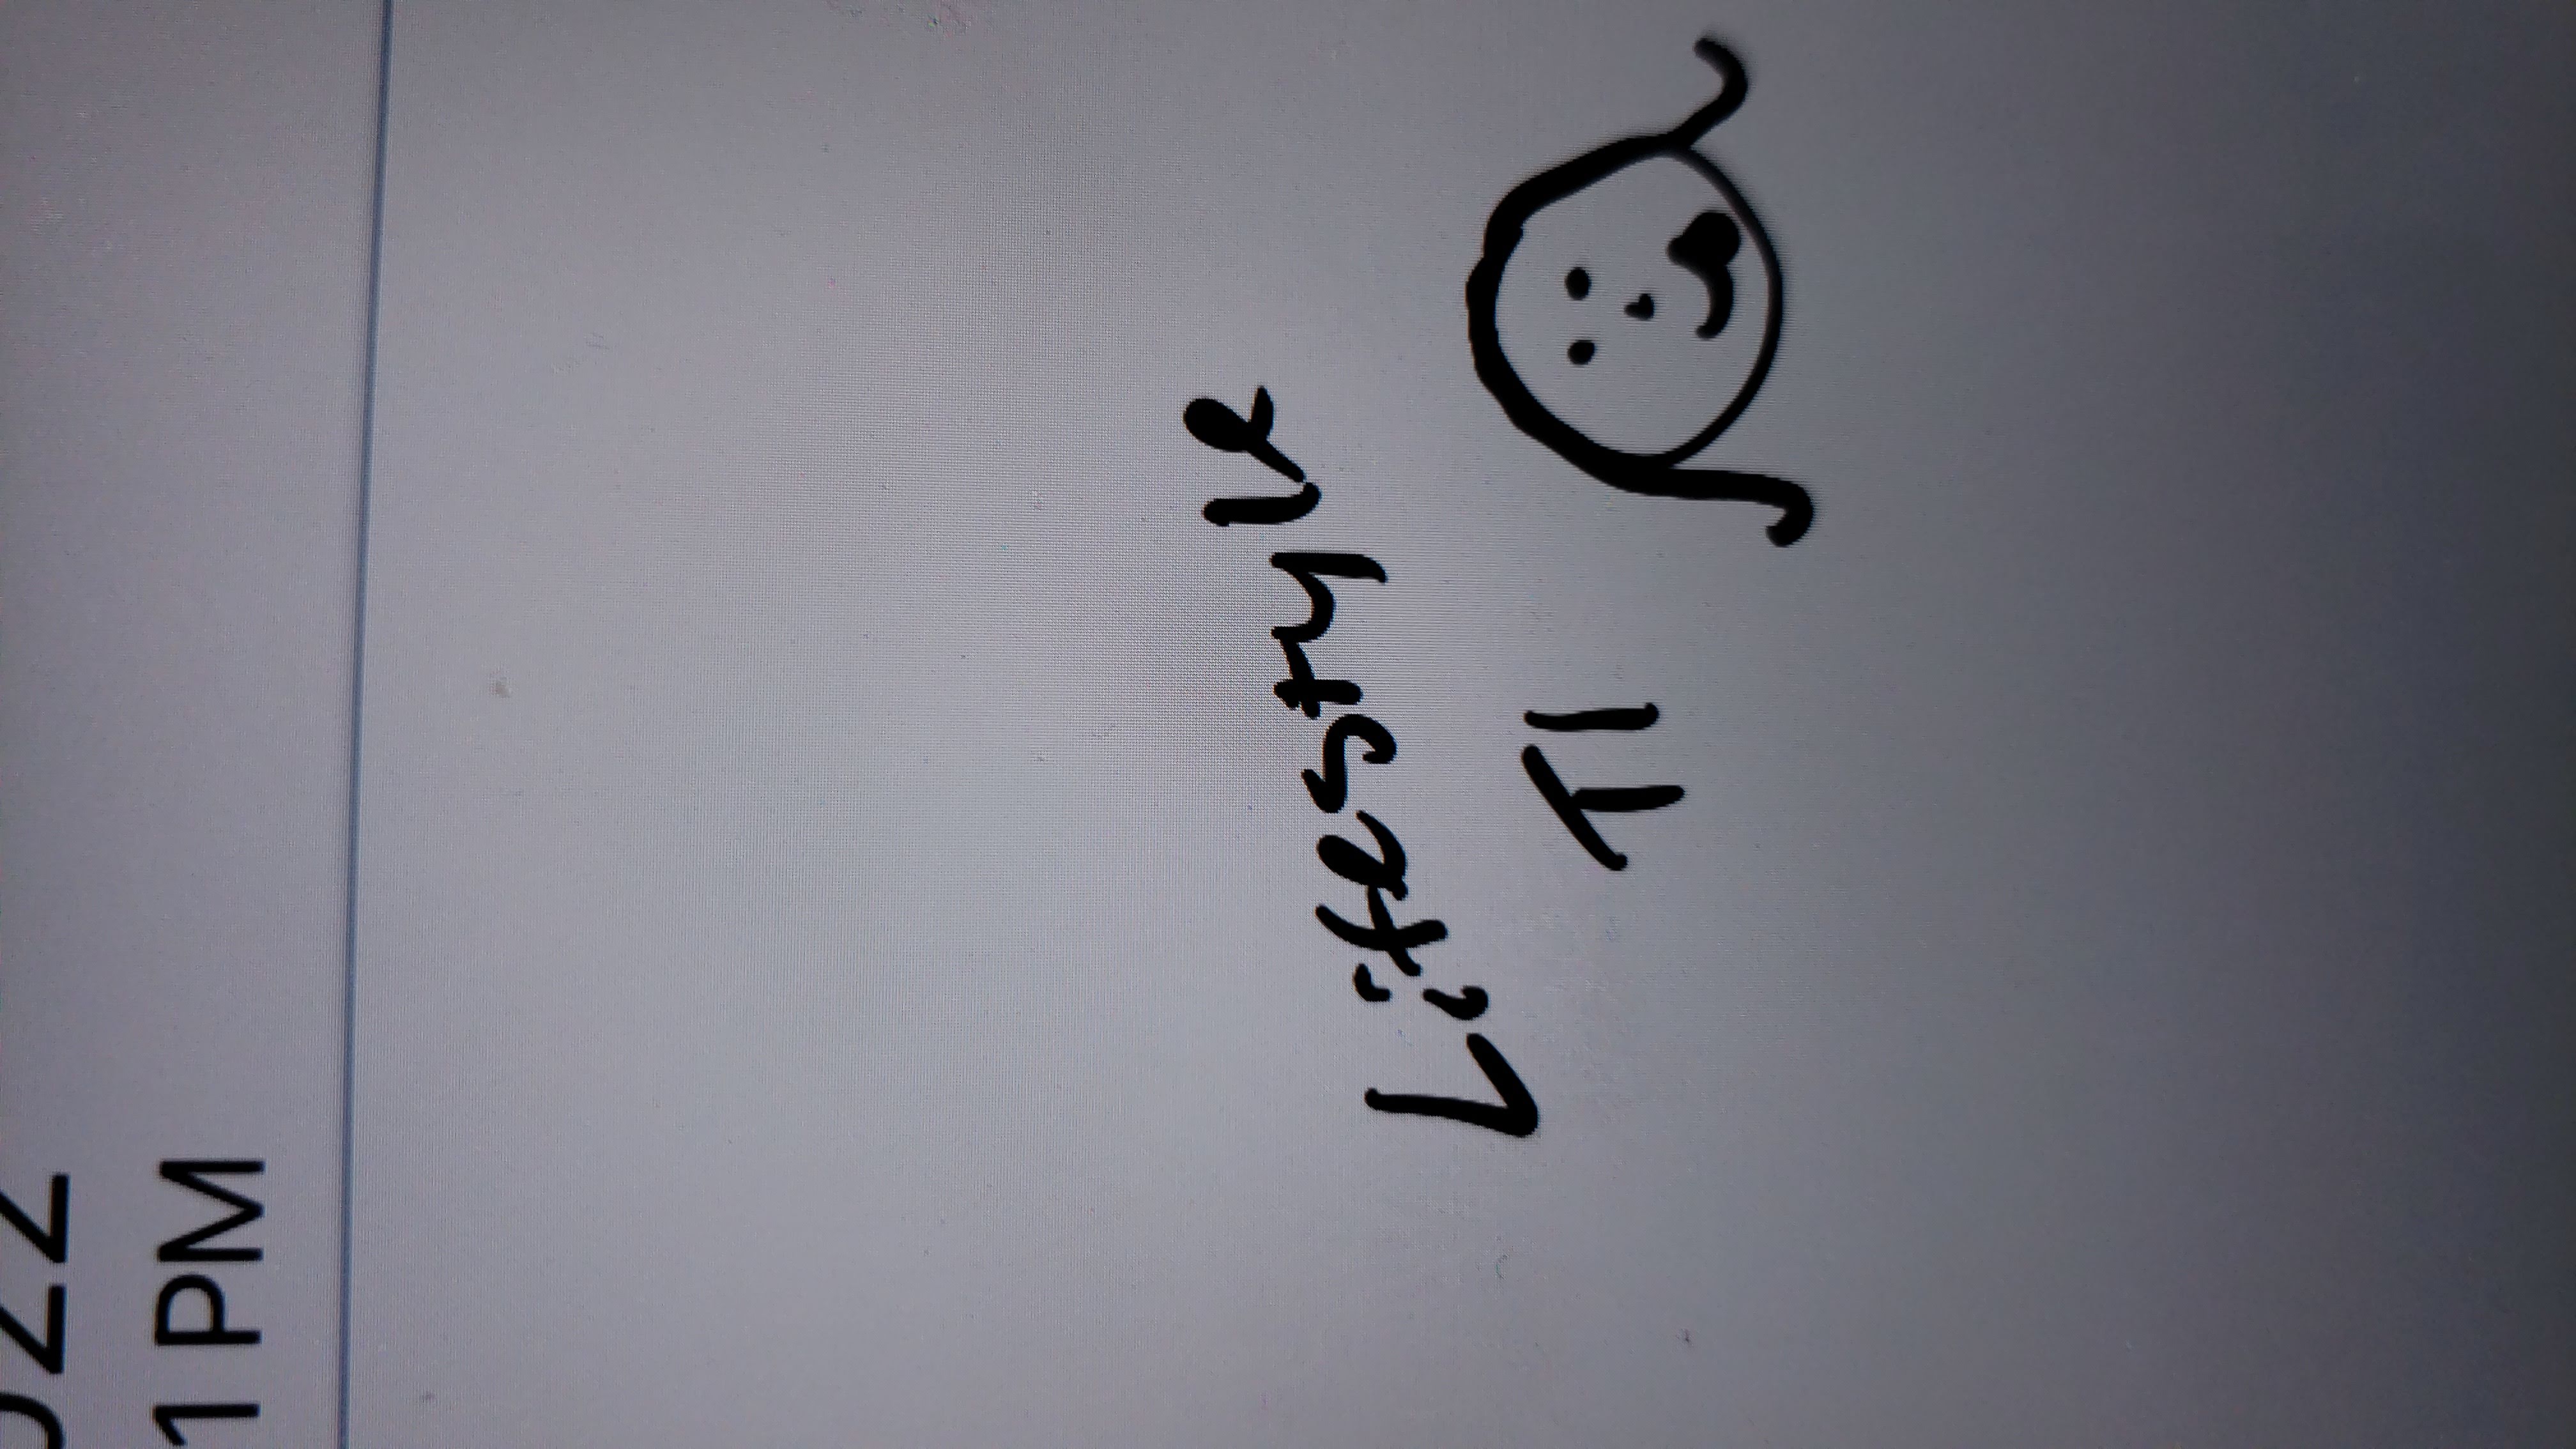 022
1 PM
Lifestyle
T1